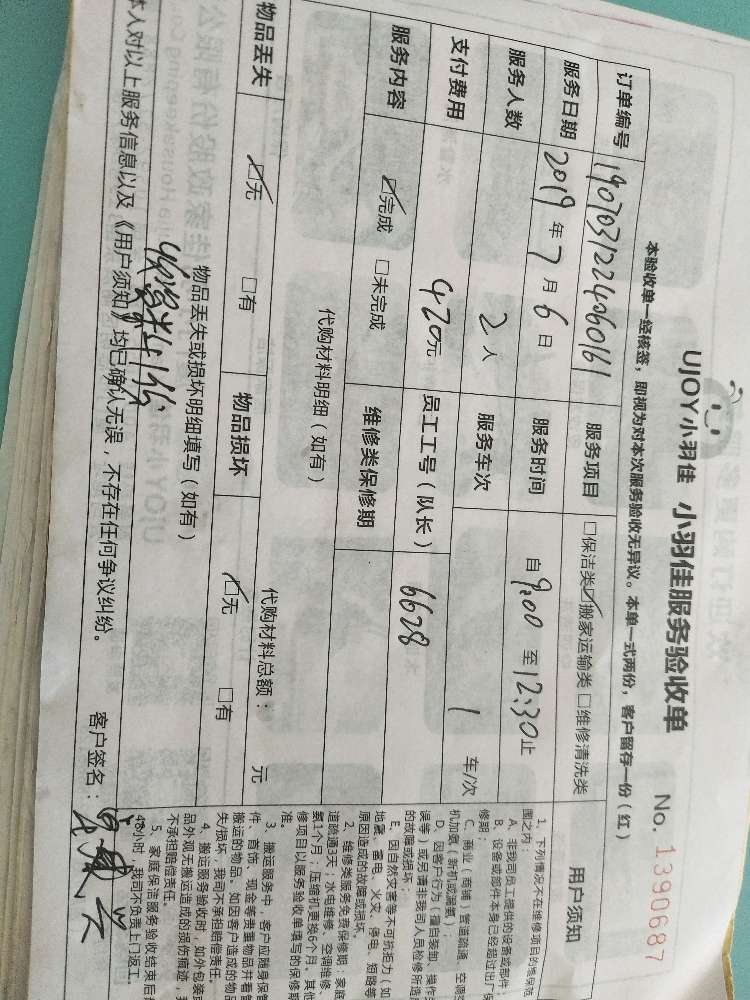 UJOY小羽佳 小羽佳服务验收单 No. 1390687
本验收单一经核签，即视为对本次服务验收无异议。本单一式两份，客户留存一份（红）
订单编号 190703122406 0161 服务项目 □保洁类☑搬家运输类□维修清洗类
服务日期 2019年7月6日 服务时间 自9:00至12:30止
服务人数 2人 服务车次 1 车/次
支付费用 420元 员工工号（队长） 6628
服务内容 ☑完成 □未完成 维修类保修期
代购材料明细（如有） 代购材料总额： 元
物品丢失 ☑无 □有 物品损坏 ☑无 □有
物品丢失或损坏明细填写（如有）
本人对以上服务信息以及《用户须知》均已确认无误，不存在任何争议纠纷。 客户签名：
用户须知
1、下列情况不在维修项目的维保范
围之内：
A、非我司员工提供的设备或部件；
B、设备或部件本身已经超过出厂保
修期；
C、商业（商铺）管道疏通、空调
机加氟（新机或漏氟）；
D、因客户行为（擅自装卸、操作
误等）或另请非我司人员检修所造
的故障或损坏；
E、因自然灾害等不可抗拒力（如
地震、雷电、火灾、停电、短路等
原因造成的故障或损坏。
2、维修类服务免费保修期：家庭
道疏通3天；水电维修、空调维修
氟1个月；压缩机更换6个月，其他
修项目以服务验收单填写的保修期
准。
3、搬运服务中，客户应随身保管
件、首饰、现金等贵重物品并看管
搬运的物品。如因客户造成的物品
失/损坏，我司不承担赔偿责任。
4、搬运服务验收时，如外包装或
品外观无搬运造成的损伤痕迹，我
不承担赔偿责任。
5、家庭保洁服务验收结束后
48小时，我司不负责上门返工。